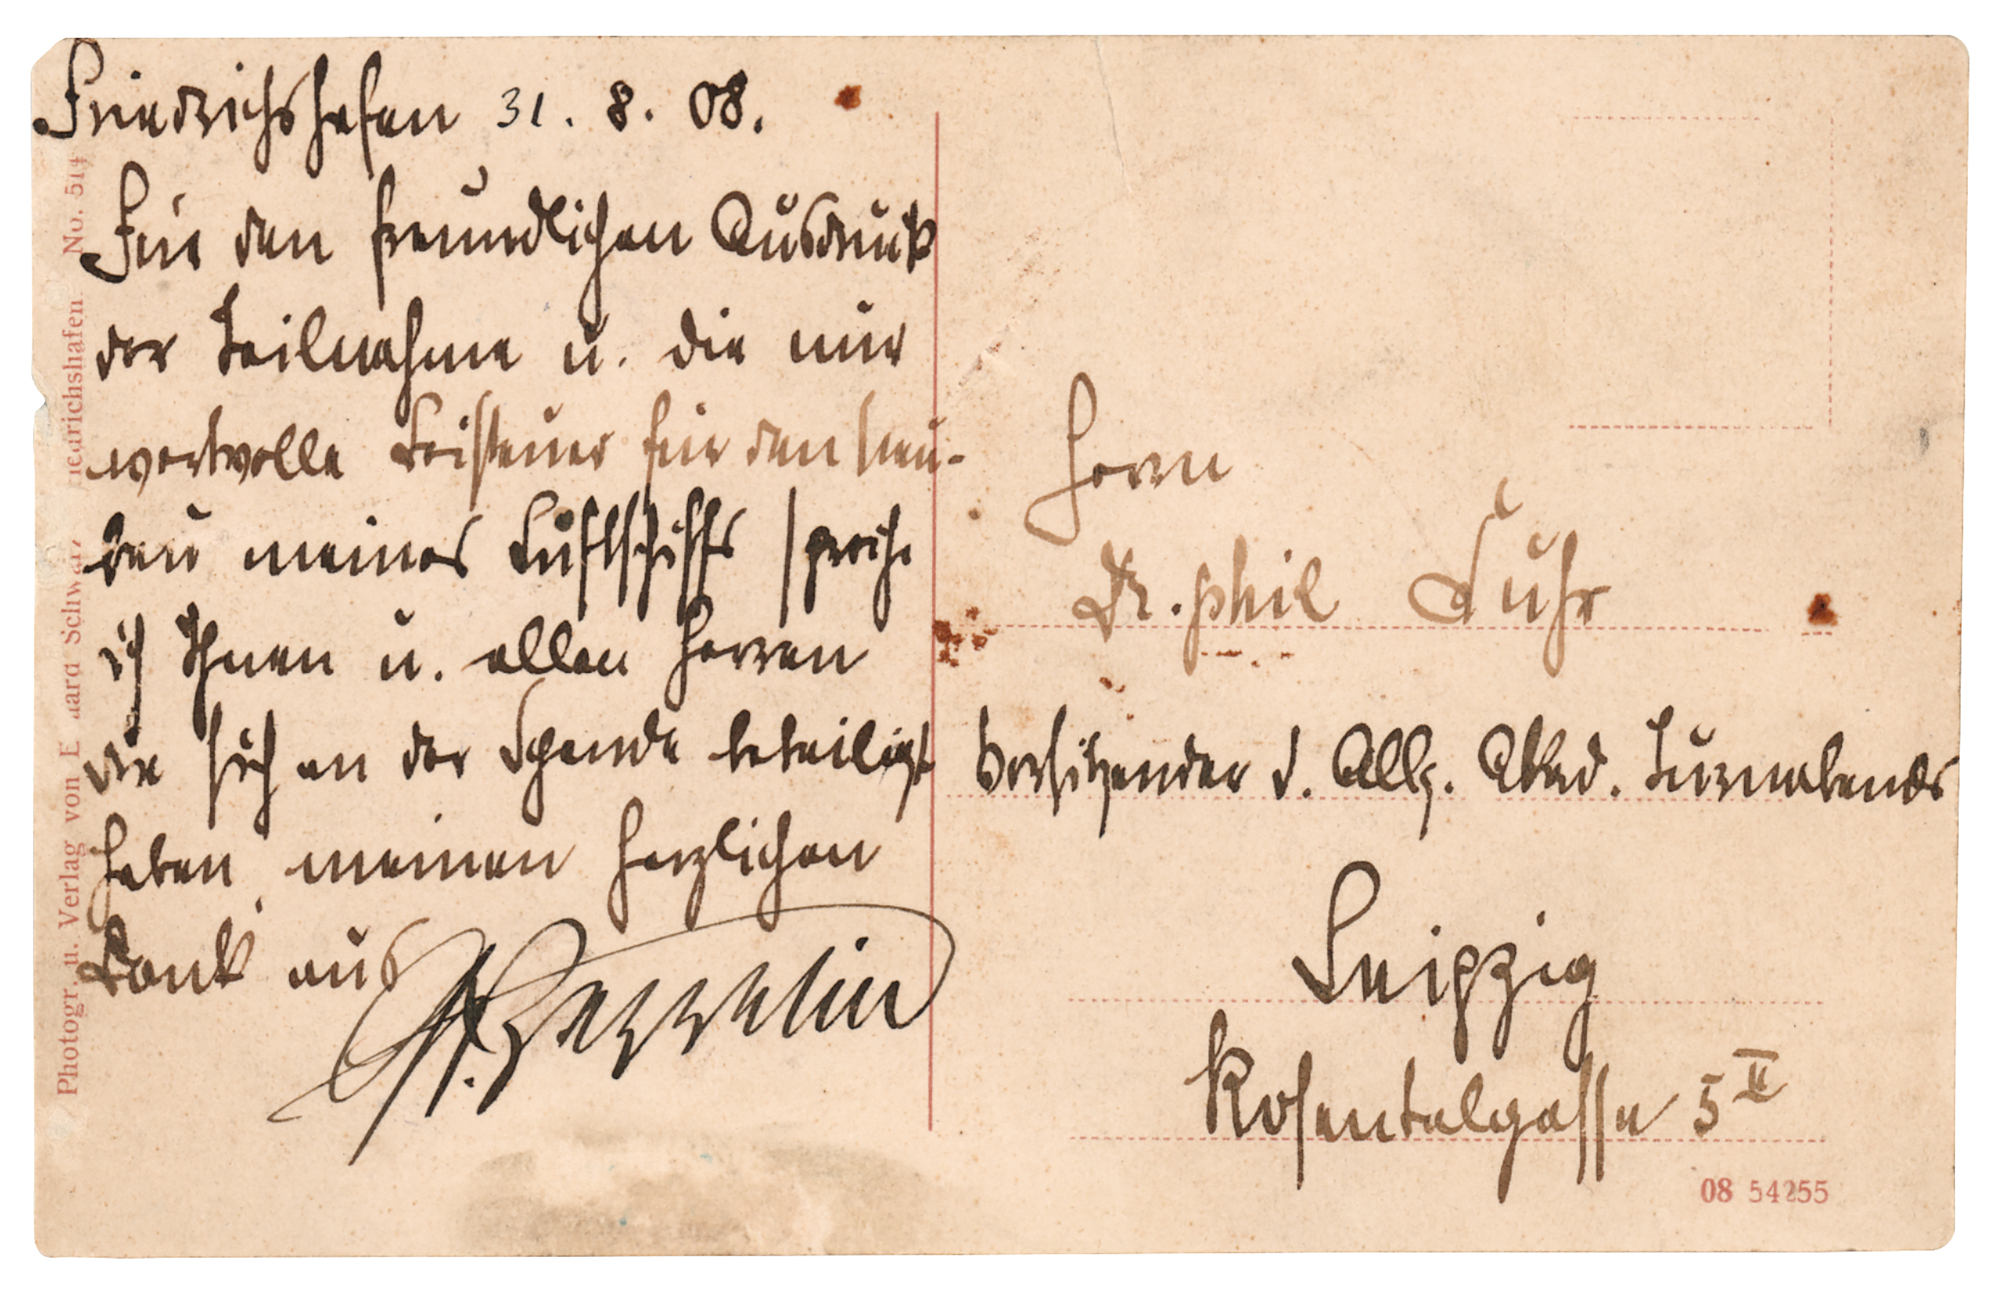 Friedrichshafen 31. 8. 08.
Für den freundlichen Ausdruck
der Teilnahme u. die mir
wertvolle Beisteuer für den Neu-
bau meines Luftschiffs spreche
ich Ihnen u. allen Herren
die sich an der Spende beteiligt
haben meinen herzlichen
Dank aus
Gf. Zeppelin
Herrn
Dr. phil Luhr
Vorsitzender d. Allg. Akad. Turnabends
Leipzig
Rosentalgasse 5 II
08 54255
Photogr. u. Verlag von E hard Schwar riedrichshafen No. 514